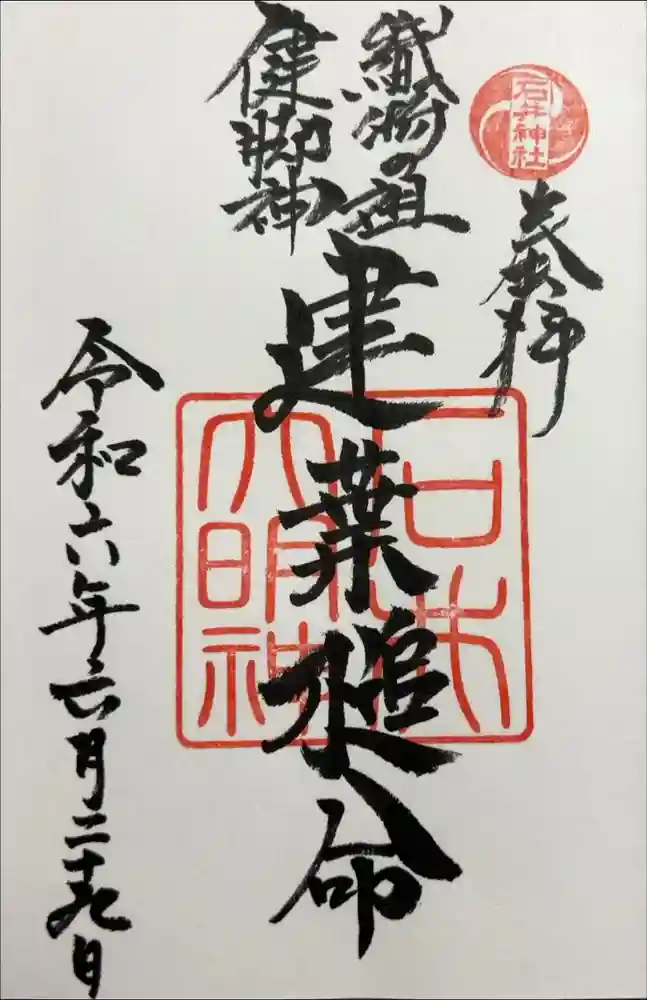 石井神社
奉拝
織物の祖
健脚神
建葉槌命
大明神
令和六年六月二十九日